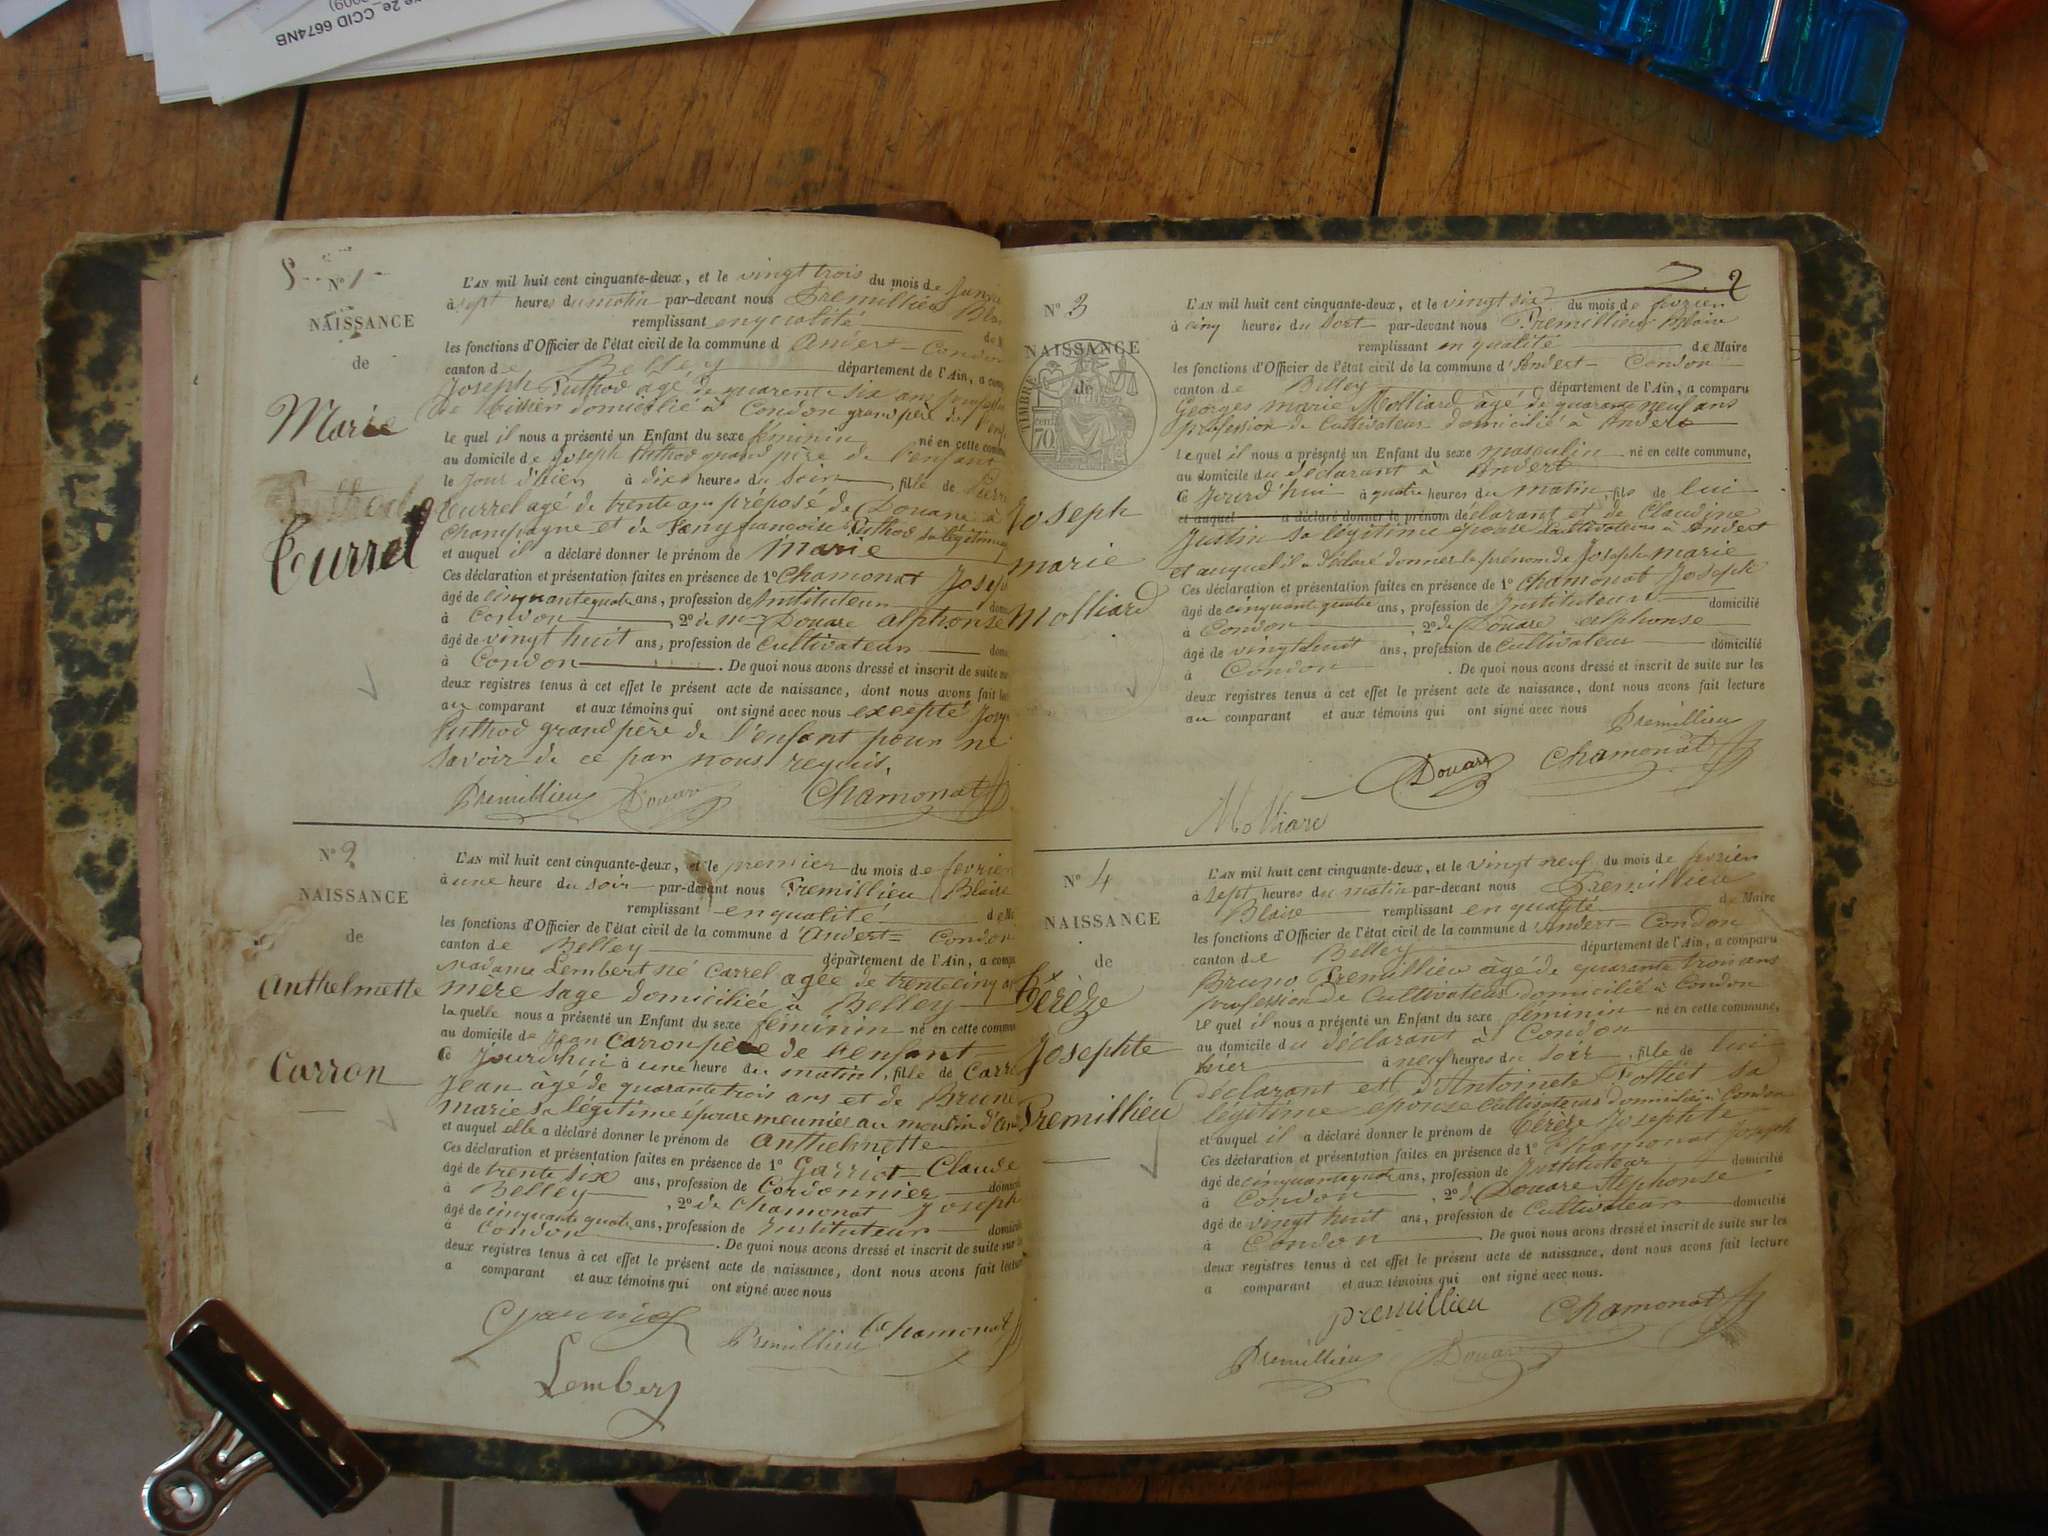 CCID 6674NB
2009)
N° 1
NAISSANCE
de
Marie
Turrel
L'AN mil huit cent cinquante-deux, et le vingt trois du mois de
à sept heures du matin par-devant nous Premillieu
remplissant en qualité
les fonctions d'Officier de l'état civil de la commune d' Andert-Condon
canton de Belley département de l'Ain, a
Joseph Puthod âgé de quarente six ans
domicilié à Condon grand père de
le quel il nous a présenté un Enfant du sexe féminin né en cette
au domicile de Joseph Puthod grand père de l'enfant
le jour d'hier à dix heures du soir, fille de
Turrel agé de trente ans préposé de Douane à
Champagne et de Fany françoise Puthod sa légitime
et auquel il a déclaré donner le prénom de Marie
Ces déclaration et présentation faites en présence de 1° Chamonat
âgé de cinquante quatre ans, profession de Instituteur
à Condon, 2° de Douare alphonse
âgé de vingt huit ans, profession de Cultivateur
à Condon. De quoi nous avons dressé et inscrit de suite
deux registres tenus à cet effet le présent acte de naissance, dont nous avons fait
au comparant et aux témoins qui ont signé avec nous excepté
Puthod grand père de l'enfant pour ne
savoir de ce par nous requis.
Premillieu Douare Chamonat
N° 2
NAISSANCE
de
Anthelmette
Carron
L'AN mil huit cent cinquante-deux, et le premier du mois de fevrier
à une heure du soir par-devant nous Premillieu Blaise
remplissant en qualité
les fonctions d'Officier de l'état civil de la commune d' Andert-Condon
canton de Belley département de l'Ain, a
Madame Lembert né Carrel agée de trente cinq
mère sage domiciliée à Belley
la quelle nous a présenté un Enfant du sexe féminin né en cette
au domicile de Jean Carron père de l'enfant
Ce jourd'hui à une heure du matin, fille de
Jean âgé de quarante trois ans et de
Marie sa légitime épouse meunier au moulin
et auquel elle a déclaré donner le prénom de Anthelmette
Ces déclaration et présentation faites en présence de 1° Claude
âgé de trente six ans, profession de Cordonnier
à Belley, 2° de Chamonat Joseph
âgé de cinquante quatre ans, profession de Instituteur
à Condon. De quoi nous avons dressé et inscrit de suite sur
deux registres tenus à cet effet le présent acte de naissance, dont nous avons fait
a comparant et aux témoins qui ont signé avec nous
Premillieu Chamonat
Lembert
2
N° 3
NAISSANCE
de
TIMBRE
70
Joseph
marie
Molliard
L'AN mil huit cent cinquante-deux, et le vingt six du mois de fevrier
à cinq heures du soir par-devant nous Premillieu Blaise
remplissant en qualité de Maire
les fonctions d'Officier de l'état civil de la commune d'Andert-Condon
canton de Belley département de l'Ain, a comparu
Georges marie Molliard âgé de quarante neuf ans
profession de Cultivateur domicilié à Andert
Le quel il nous a présenté un Enfant du sexe masculin né en cette commune,
au domicile du déclarant à Andert
Ce Jourd'hui à quatre heures du matin, fils de lui
et auquel a déclaré donner le prénom déclarant et de Claudine
Justin sa légitime épouse Cultivateurs à Andert
et auquel il a déclaré donner le prénom de Joseph marie
Ces déclaration et présentation faites en présence de 1° Chamonat Joseph
âgé de cinquante quatre ans, profession de Instituteur domicilié
à Condon, 2° de Douare alphonse
âgé de vingt huit ans, profession de Cultivateur domicilié
à Condon. De quoi nous avons dressé et inscrit de suite sur les
deux registres tenus à cet effet le présent acte de naissance, dont nous avons fait lecture
au comparant et aux témoins qui ont signé avec nous
Premillieu
Douare Chamonat
Molliard
N° 4
NAISSANCE
de
Térèze
Josephte
Premillieu
L'AN mil huit cent cinquante-deux, et le vingt neuf du mois de fevrier
à sept heures du matin par-devant nous Premillieu
Blaise remplissant en qualité de Maire
les fonctions d'Officier de l'état civil de la commune d'Andert-Condon
canton de Belley département de l'Ain, a comparu
Bruno Premillieu âgé de quarante trois ans
profession de Cultivateur domicilié à Condon
Le quel il nous a présenté un Enfant du sexe féminin né en cette commune,
au domicile du déclarant à Condon
hier à neuf heures du soir, fille de lui
déclarant et d'Antoinete sa
légitime épouse Cultivateurs domiciliés à Condon
et auquel il a déclaré donner le prénom de Térèze Josephte
Ces déclaration et présentation faites en présence de 1° Chamonat Joseph
âgé de cinquante quatre ans, profession de Instituteur domicilié
à Condon, 2° de Douare Alphonse
âgé de vingt huit ans, profession de Cultivateur domicilié
à Condon De quoi nous avons dressé et inscrit de suite sur les
deux registres tenus à cet effet le présent acte de naissance, dont nous avons fait lecture
a comparant et aux témoins qui ont signé avec nous.
Premillieu Chamonat
Premillieu Douare